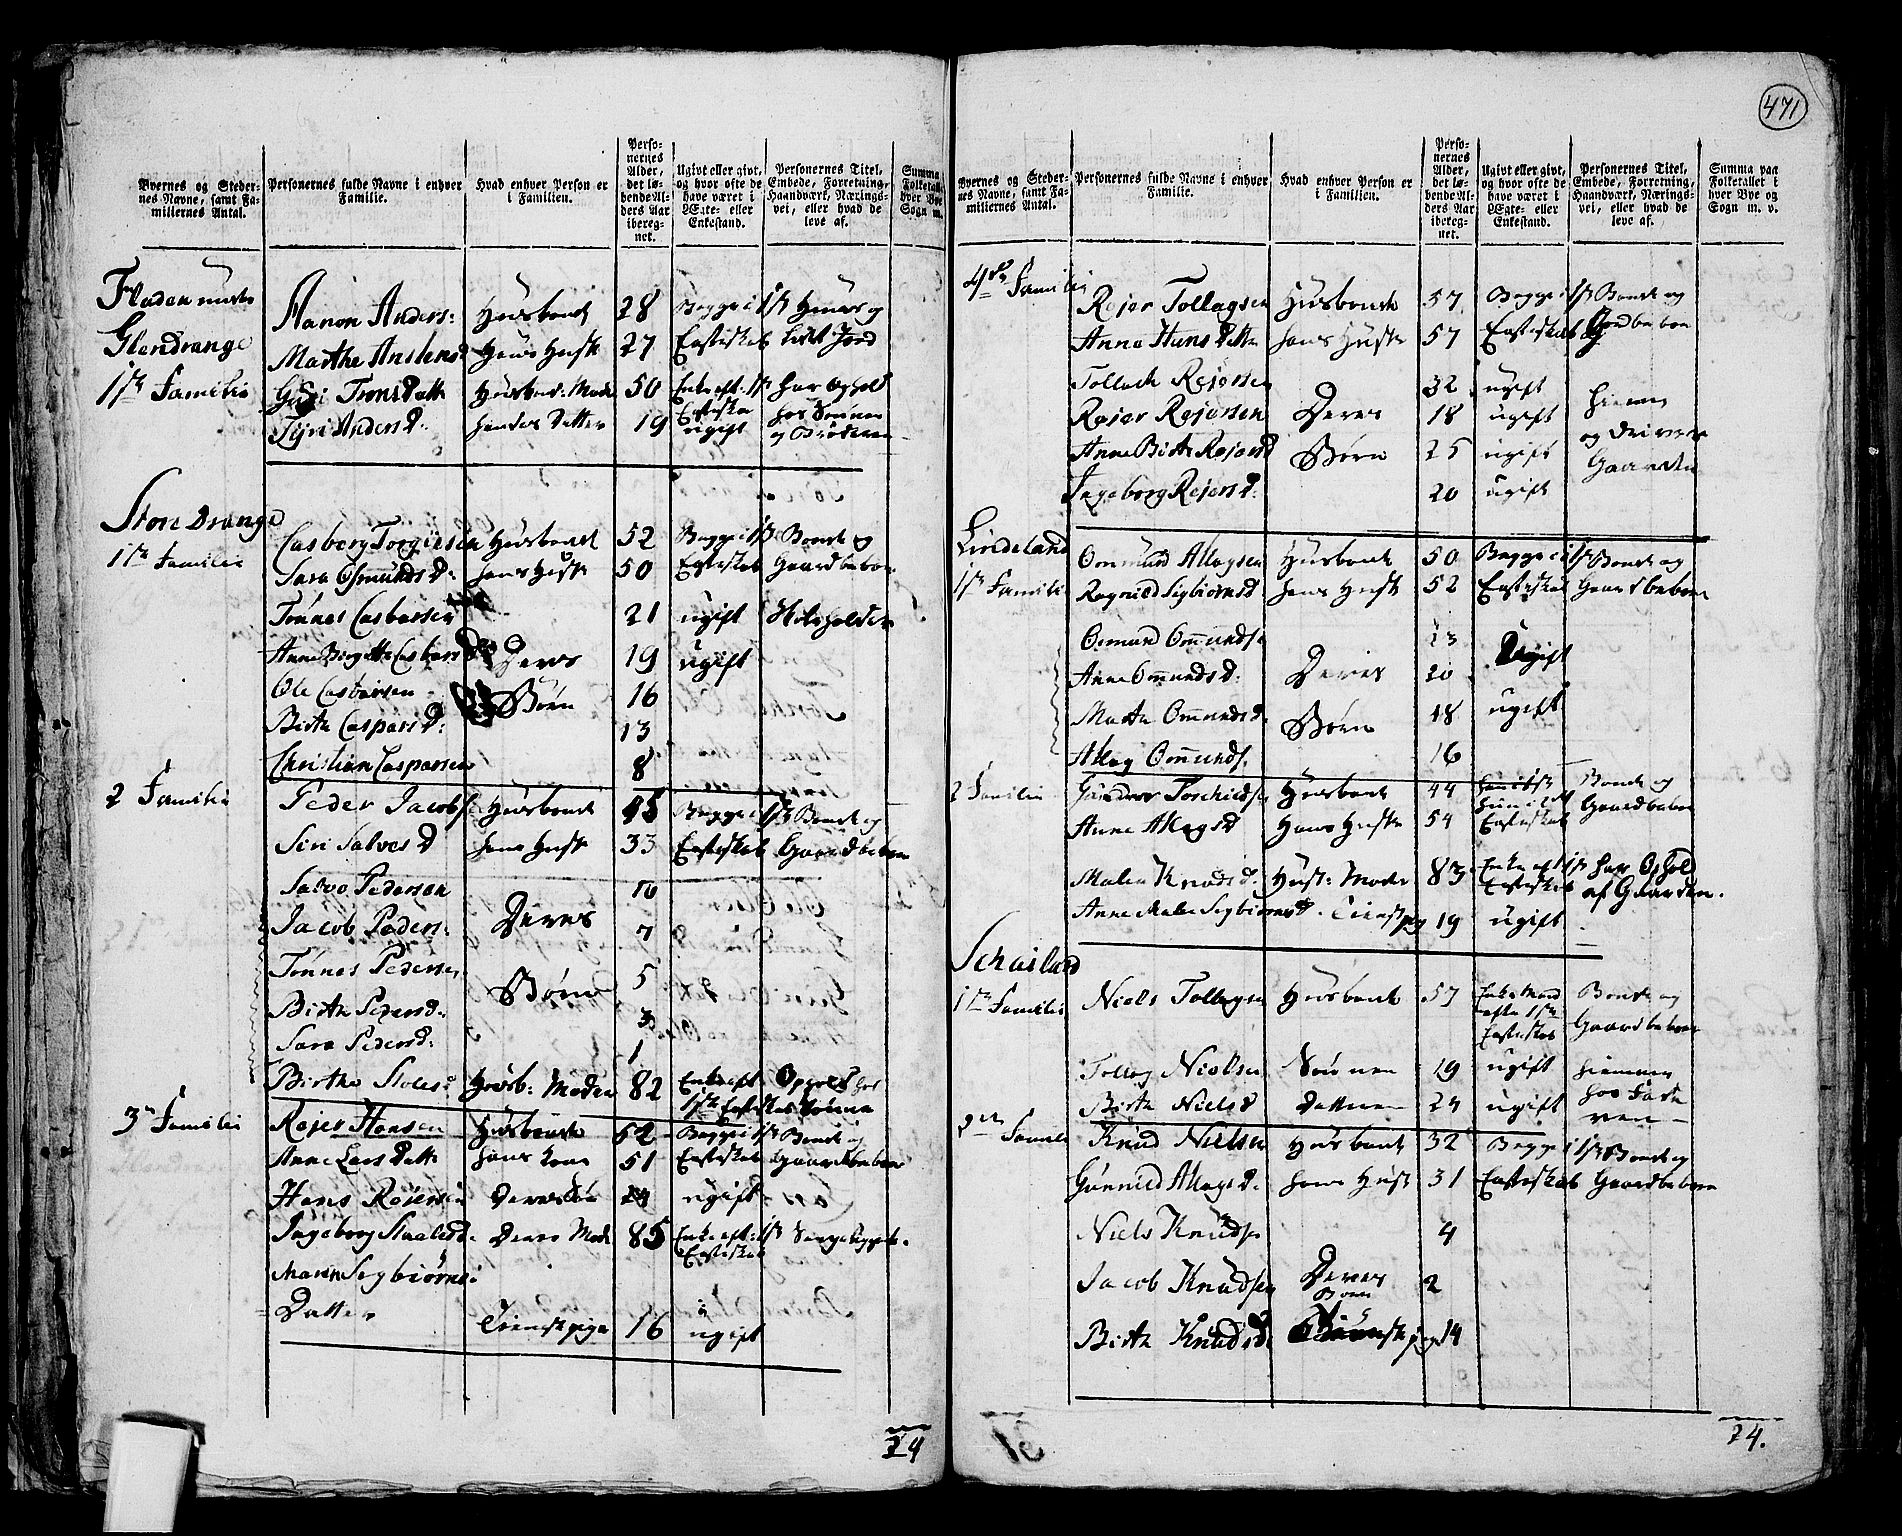 471
Byernes og Steder- nes Navne, samt Fa- miliernes Antal.
Personernes fulde Navne i enhver Familie.
Hvad enhver Person er i Familien.
Perso- nernes Alder, det lø- bende Al- ders Aar iberegnet.
Ugivt eller givt, og hvor ofte de have været i Ægte- eller Enkestand.
Personernes Titel, Embede, Forretning, Haandværk, Nærings- vei, eller hvad de leve af.
Summa Folketallet hver Bye Sogn m.
Fladen
Glendrange
1ste Familie
Aanon Anders: Huusbonde 28 Begge i 1ste Huus og
Marthe Anstensd Hans Hustr 27 Egteskab lidt Jord
Guri Trons Datt Huusbond: Mode 50 Enke eft. 1ste har Ophold
Egteska hos Sønnen
Siri Anders D. hendes Datter 19 ugift og Broderen
Store Drange
1te Familie
Casberg Torgiersen Huusbonde 52 Begge i 1ste Bonde og
Sara Osmunds D. hans Hustr 50 Egteskab Gaardbeboer
Tønnes Casbersen 21 ugift
Anne Birgitte Casbers D Deres 19 ugift
Ole Casbersen Børn 16
Birthe Caspers D: 13
Christian Caspersen 8
2 Familie
Peder Jacobs: Huusbonde 45 Begge i 1ste Bonde og
Siri Salves D hans Hustr 33 Egteskab Gaardbeboer
Salve Pedersen 10
Jacob Peders: Deres 7
Tønnes Pedersen 5
Børn
Birthe Pedersd. 3
Sara Pedersd: 1
Birthe Stolesd Huusb: Moder 82 Enke eft Ophold hos
1ste Egteskab Sønnen
3de Familie
Rejer Hansen Huusbonde 52 Begge i 1ste Bonde og
Anne Lars Datt hans Kone 51 Egteskab Gaardbeboer
Hans Reiersen Deres Søn 24 ugift
Ingeborg Staalesd Deres Mode 85 Enke eft: 1ste Sengeliggende.
Egteskab
Maren Segbiørns
Datter Tienstpige 16 ugift
24
Byernes og Steder- nes Navne, samt Fa- miliernes Antal.
Personernes fulde Navne i enhver Familie.
Hvad enhver Person er i Familien.
Perso- nernes Alder, det lø- bende Al- ders Aar iberegnet.
Ugivt eller givt, og hvor ofte de have været i Ægte- eller Enkestand.
Personernes Titel, Embede, Forretning, Haandværk, Nærings- vei, eller hvad de leve af.
Summa paa Folketallet i hver Bye og Sogn m. v.
4de Familie
Rejer Tollagsen Huusbonde 57 Begge i 1ste Bonde og
Anna Hans Datte hans Hustr 57 Egteskab Gardbeboe
Tollach Rejersen 32 ugift
Rejer Rejersen Deres 18 ugift hiemme
Anne Birthe Rejersd Børn 25 ugift og driver
Ingeborg Rejersd: 20 ugift Gaarden
Lindeland
1ste Familie
Ommund Allagsen Huusbonde 50 Begge i 1ste Bonde og
Ragnild Segbiørnsd. hans Hustr 52 Egteskab Gaardbeboer
Osmund Ommundse 23 Ugift
Anne Ommundsd. Deres 20
Marthe Ommundsd. Børn 18 ugift
Allag Ommunds. 16
2 Familie
Gunder Torchieldsen Huusbonde 44 Bonde og
Anne Allagsd Hans Hustr 54 Egteskab Gaardbeboer
Malen Knudsd. Hust: Moder 83 Enke eft 1ste har Ophold
Egteskab af Gaarden.
Anne Malene Segbiørnsd. Tienstpig 19 ugift
Schaisland
1te Familie
Niels Tollagsen Huusbonde 57 Enkemand Bonde og
efter 1ste Gaardbeboer
Egteskab
Tollag Nielsen Sønnen 19 ugift hiemme
Birthe Nielsd Datteren 24 ugift hos Fade
ren
2den Famili
Knud Nielsen Huusbonde 32 Begge i 1ste Bonde og
Gunnild Allagsd. hans Hustr 31 Egteskab Gaardbeboer
Niels Knudse 4
Jacob Knudsen Deres 2
Børn
Birthe Knudsd: Tienstpig 14
24.